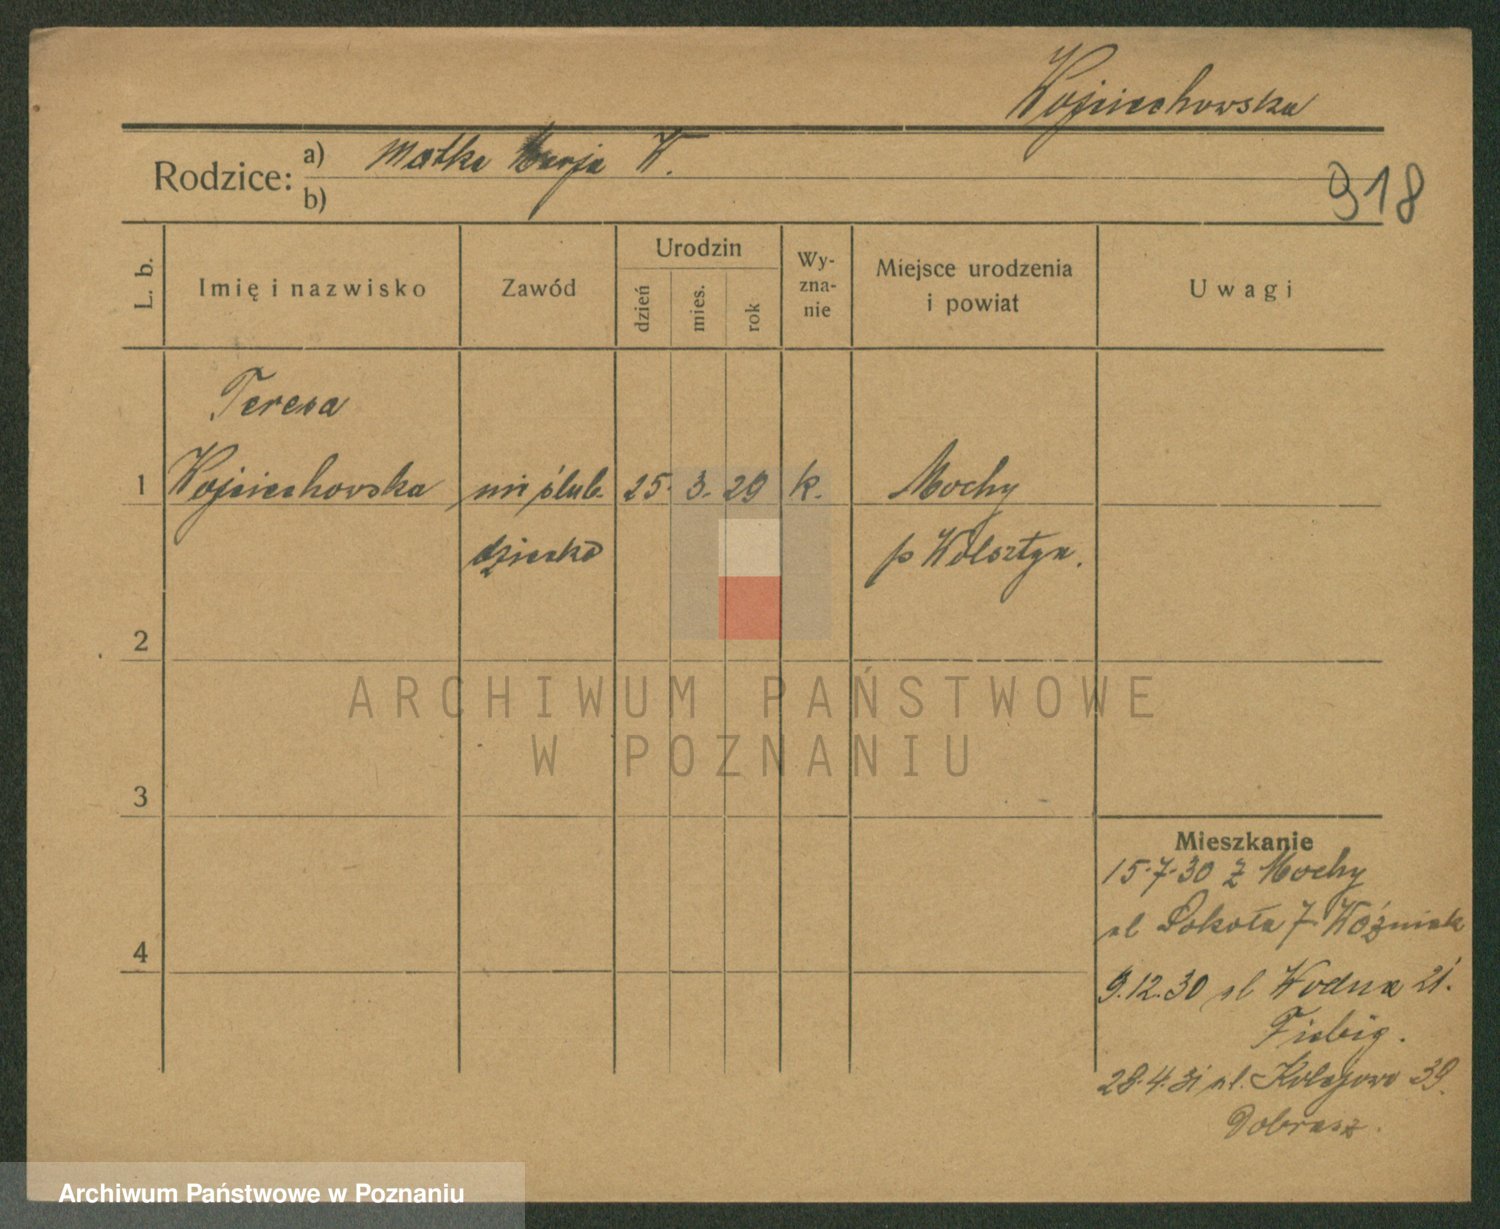 Wojciechowska
Rodzice: a) Matka Marja W.
b)
918
L. b.
Imię i nazwisko
Zawód
Urodzin
dzień
mies.
rok
Wy-
zna-
nie
Miejsce urodzenia
i powiat
Uwagi
Teresa
1 Wojciechowska nieślub. 25. 3. 29 k. Mochy
dziecko p Wolsztyn.
2
3
4
ARCHIWUM PAŃSTWOWE
W POZNANIU
Mieszkanie
15.7.30 z Mochy
ul Sokoła 7 Woźniak
9.12.30 ul Wodna 21.
Fiebig.
28.4.31 ul. Kolejowa 39.
Dobrasz.
Archiwum Państwowe w Poznaniu